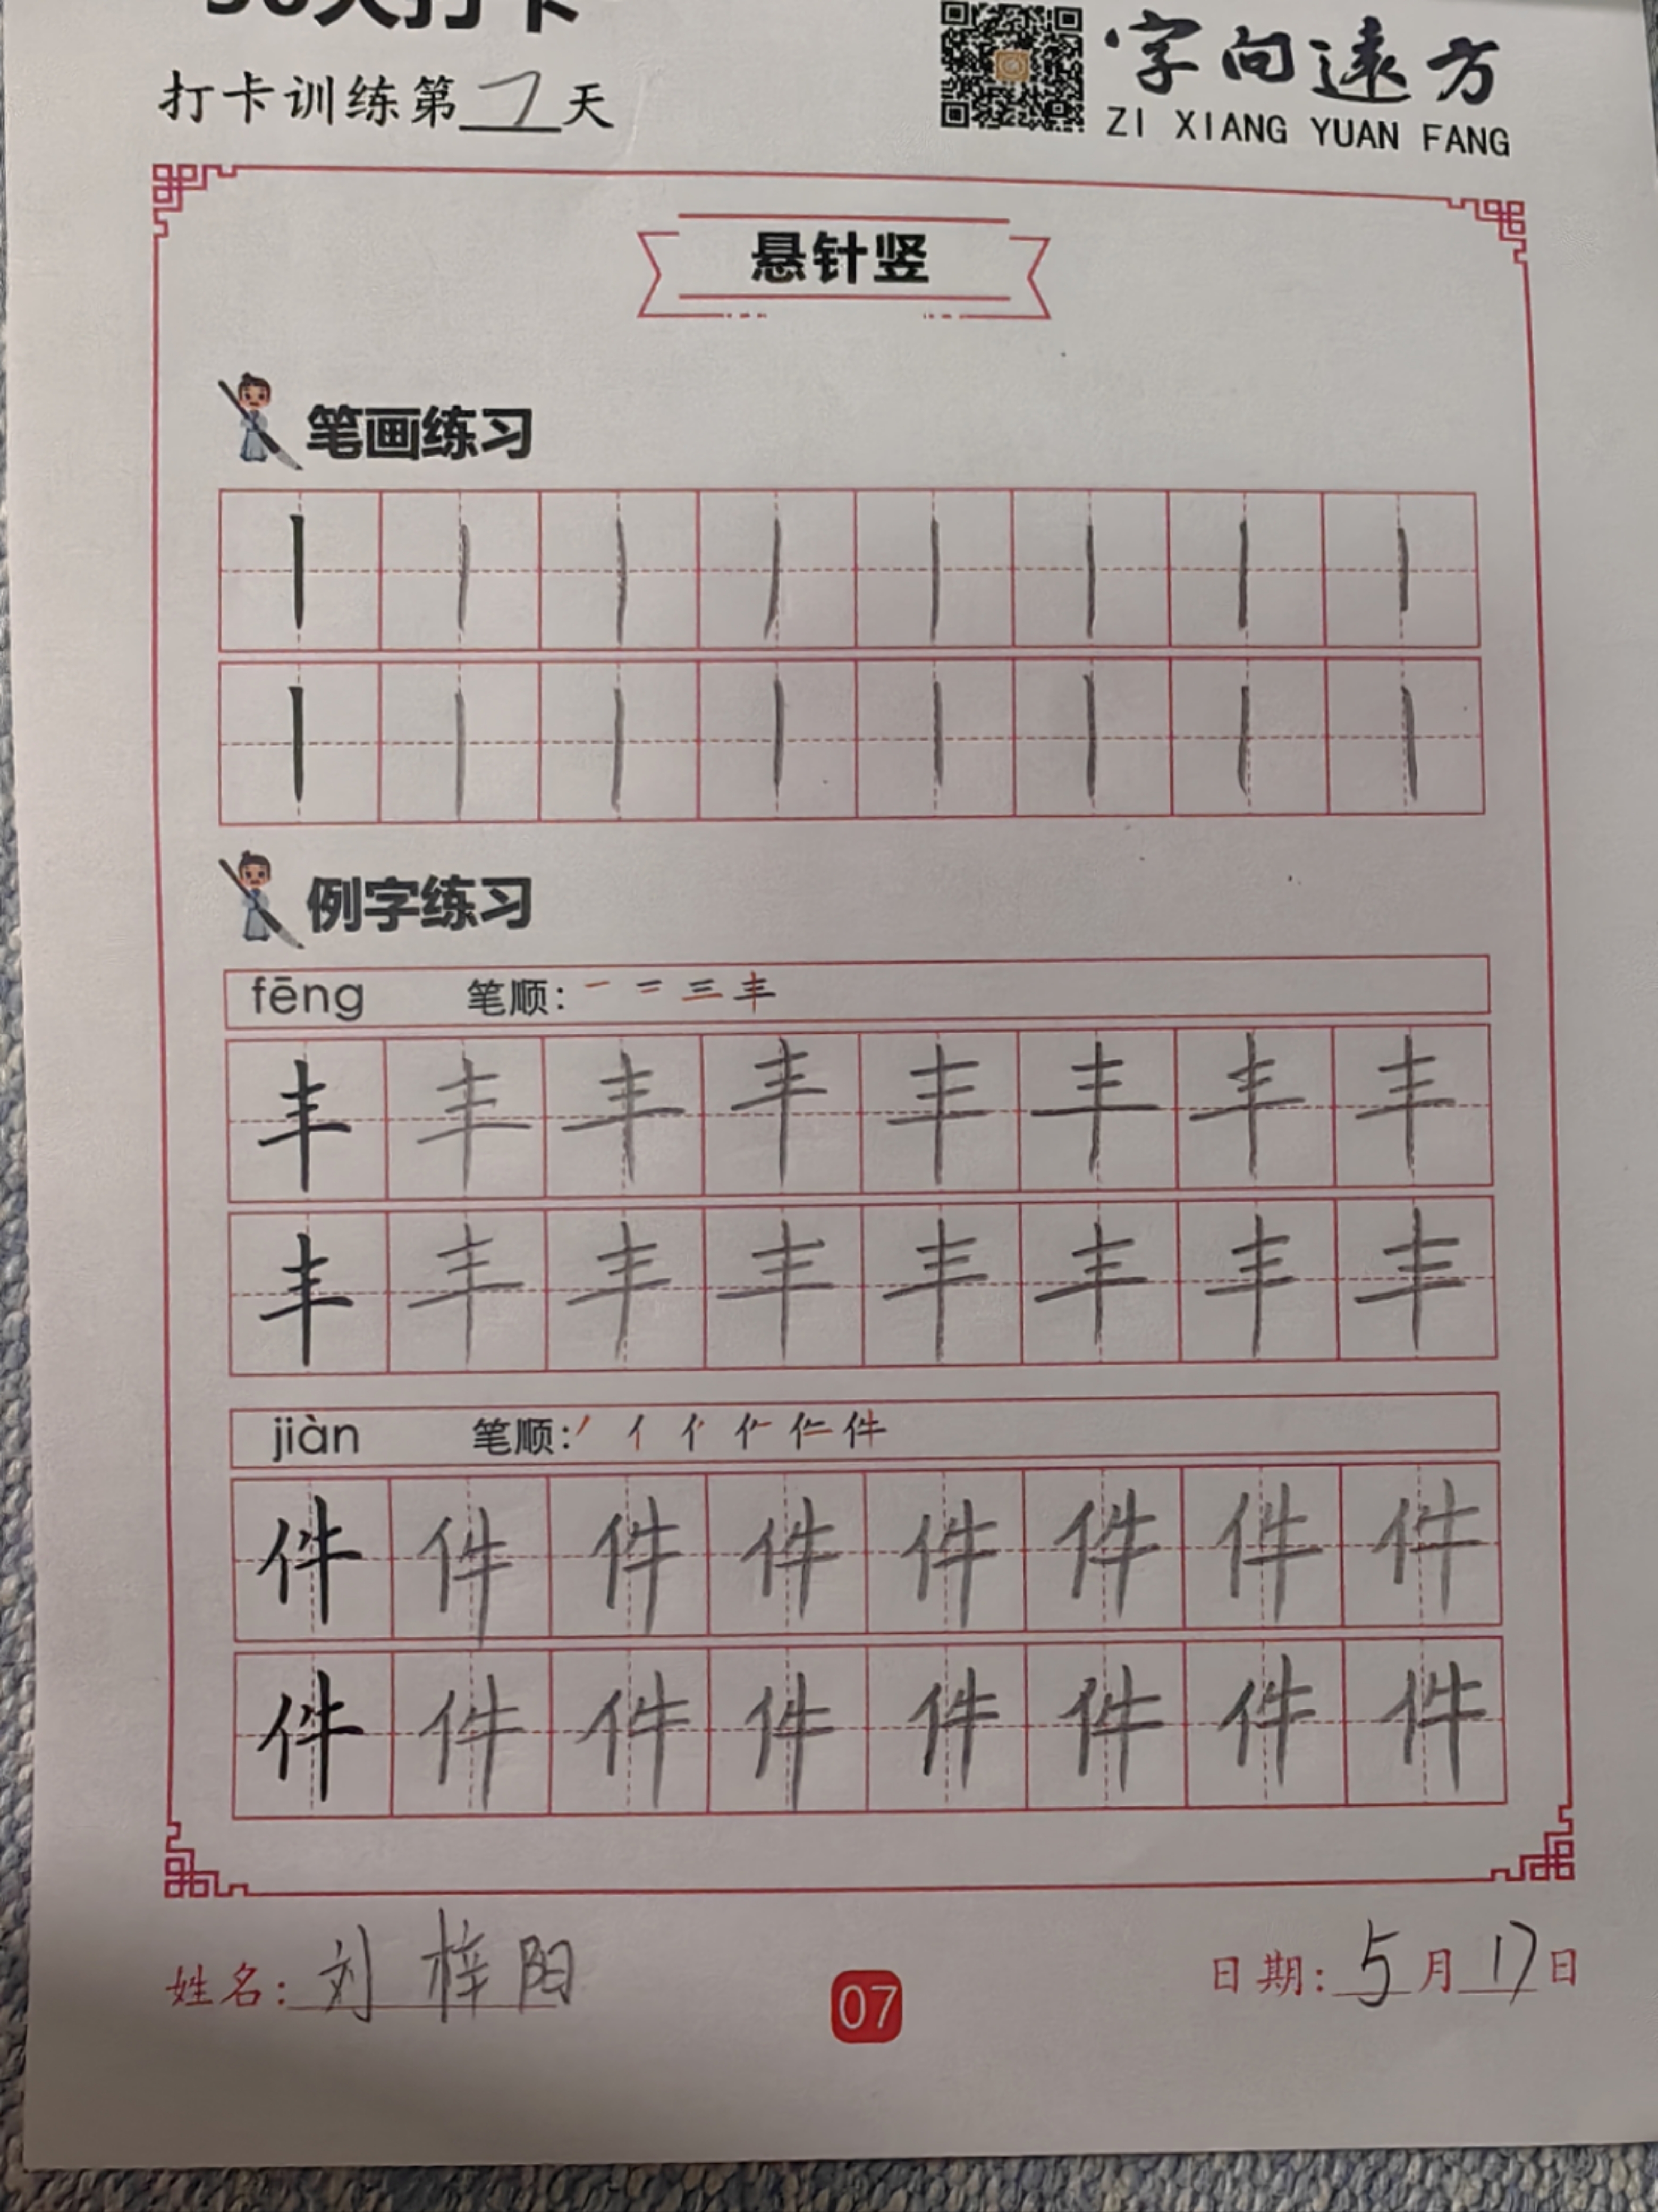 30天打卡
打卡训练第7天
字向遠方
ZI XIANG YUAN FANG
悬针竖
笔画练习
丨丨丨丨丨丨丨丨
丨丨丨丨丨丨丨丨
例字练习
fēng 笔顺: 一 二 三 丰
丰丰丰丰丰丰丰丰
丰丰丰丰丰丰丰丰
jiàn 笔顺:
件件件件件件件件
件件件件件件件件
姓名: 刘梓阳
07
日期: 5月17日